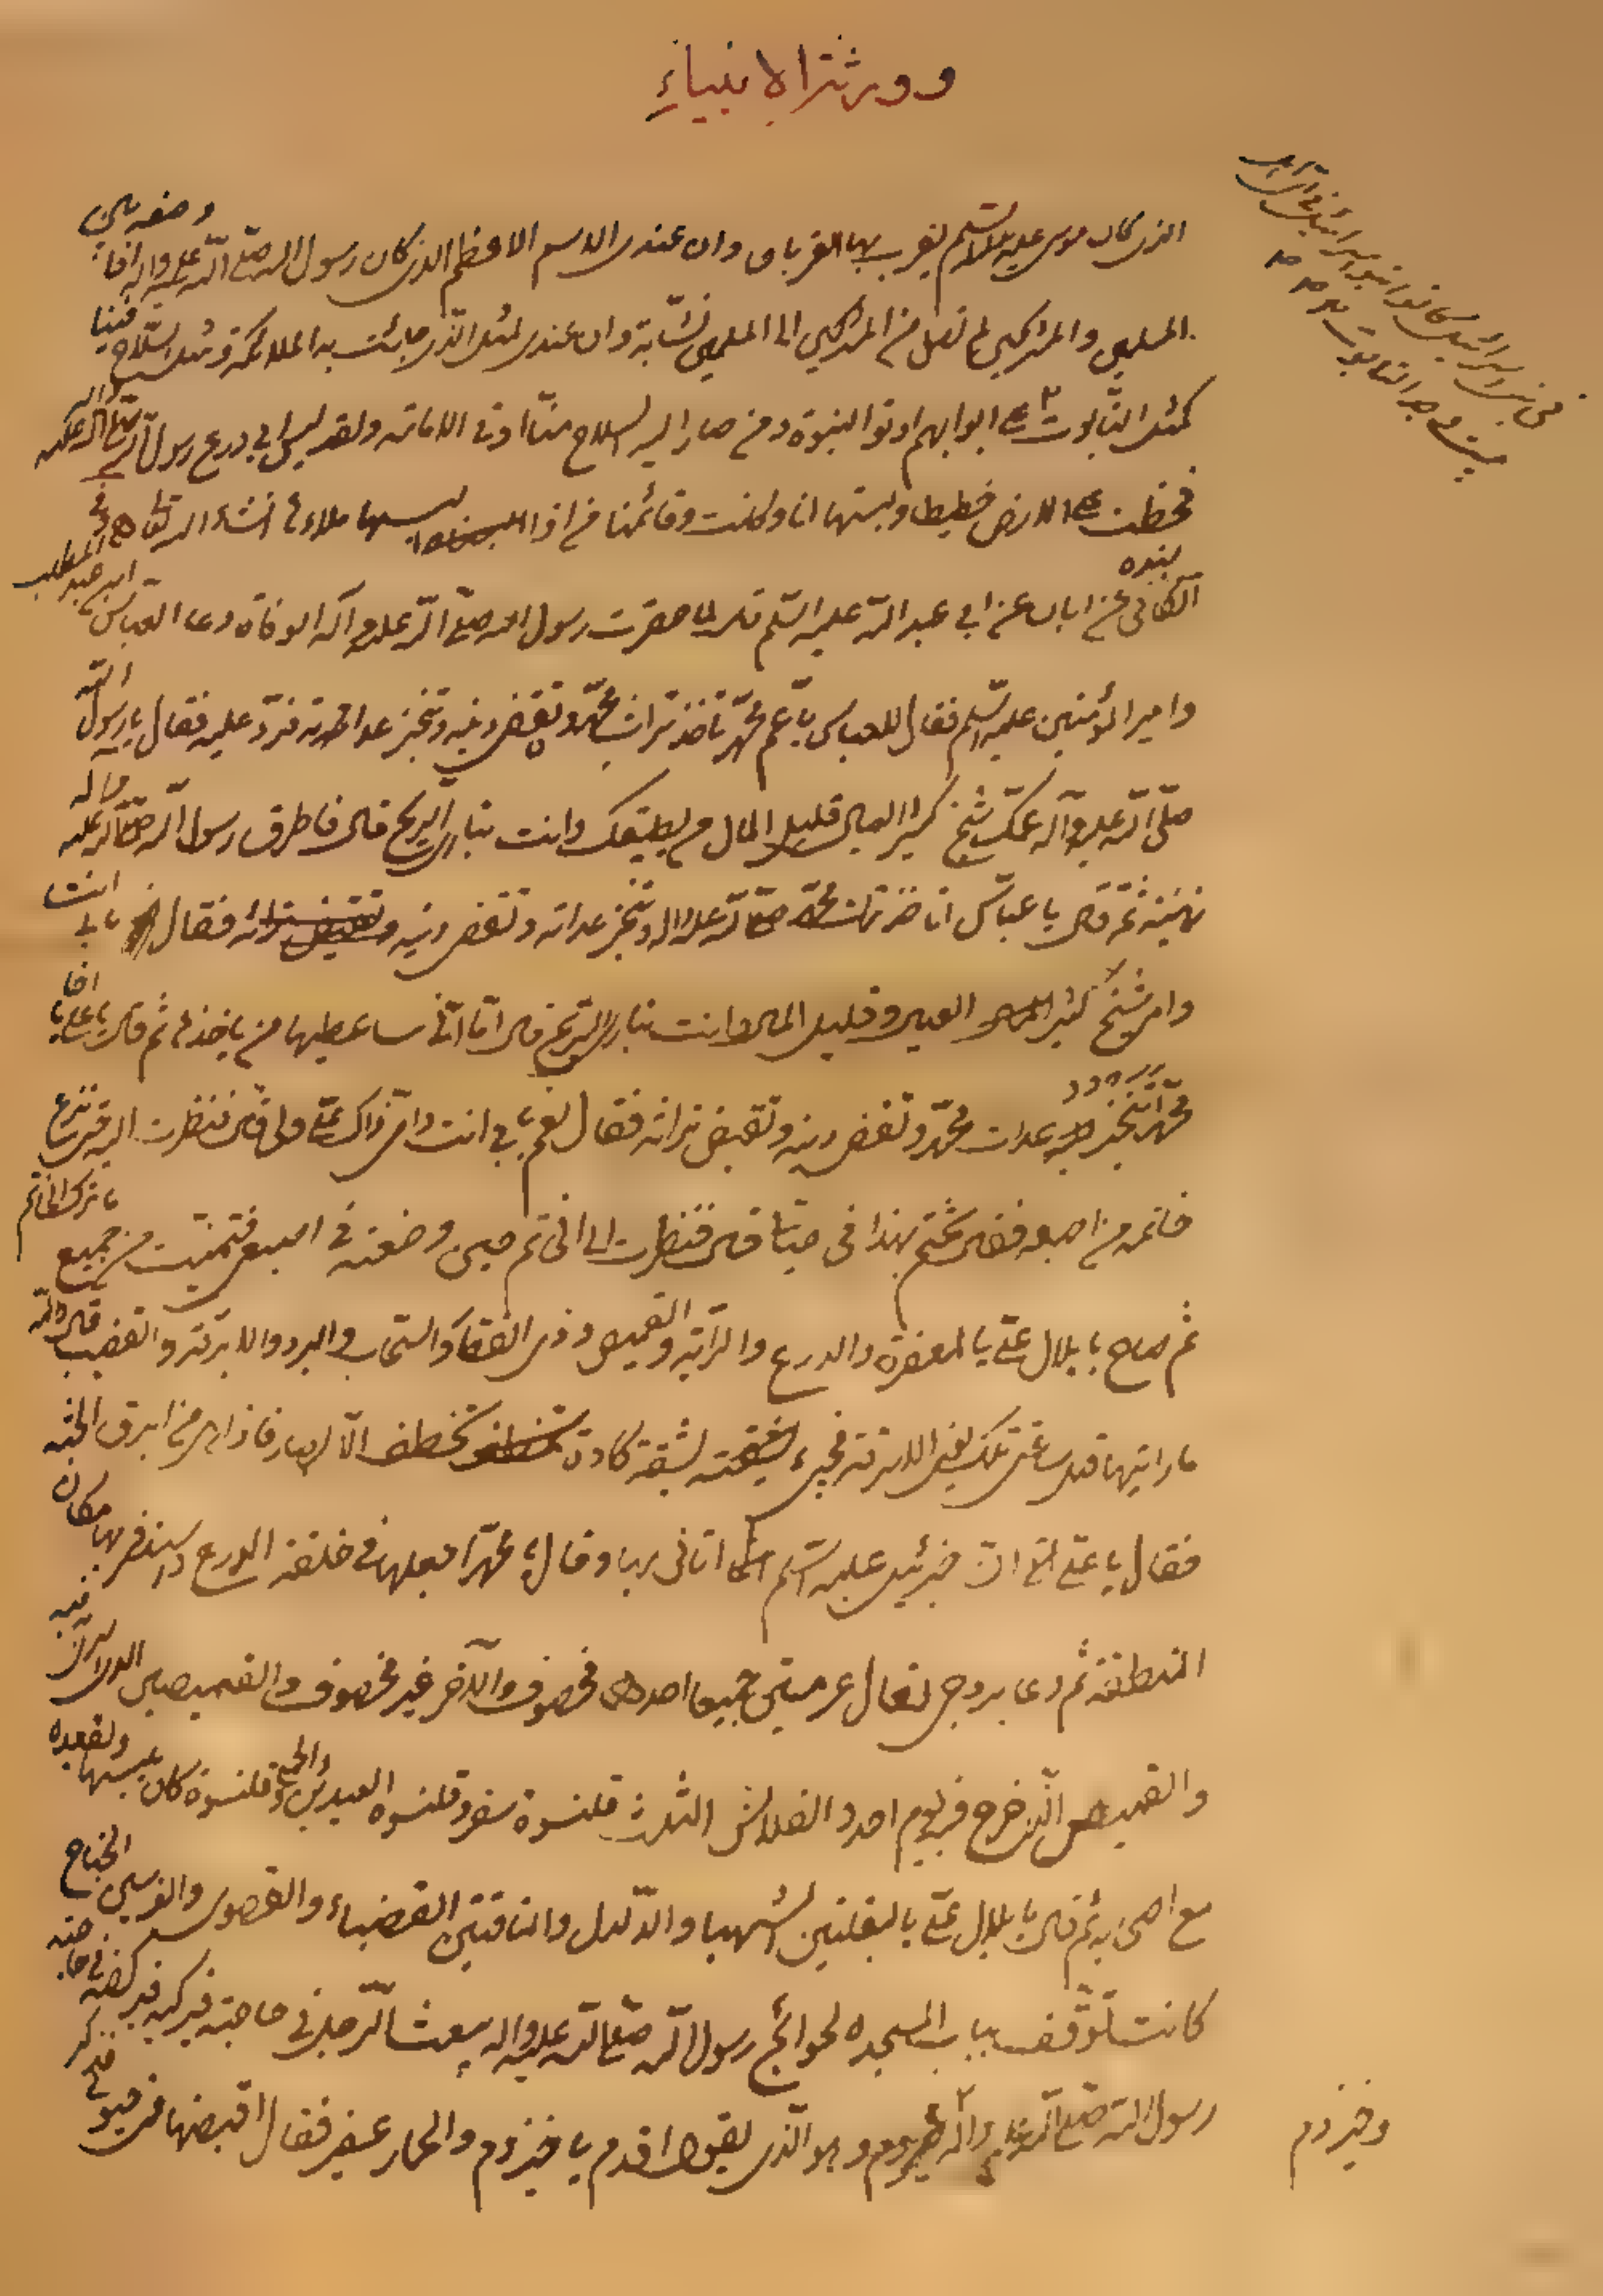 وورثة الانبياء
الذى كان موسى عليه السلام يقرب بها القربان وان عندى الاسم الاعظم الذى كان رسول الله صلّى الله عليه واله اذا وضعه بين
المسلمين والمشركين لم تصل من المشركين الى المسلمين نشّابة وان عندى لمثل الّذى جائت به الملائكة ومثل السّلاح فينا
كمثل التّابوت فى بنى اسرائيل كانوا بنو اسرائيل فى اىّ اهل
بيت وجد التابوت على ابوابهم اوتوا النبوة ومن صار اليه السلاح منّا اوتى الامامة ولقد لبس ابى درع رسول الله صلّى الله عليه واله
فخطت على الارض خطيطا ولبستها انا وكانت وقائمنا من اذا لبسها ملاءها انشاء الله تعالى فى
الكافى بسنده عن ابان عن ابى عبد الله عليه السّلم قال لما حضرت رسول الله صلّى الله عليه واله الوفاة دعا العبّاس ابن عبد المطلب
وامير المؤمنين عليه السّلم فقال للعباس يا عمّ محمّد تأخذ تراث محمّد وتقضى دينه وتنجز عداته فردّ عليه فقال يا رسول الله
صلّى الله عليه وآله عمّك شيخ كثير العيال قليل المال من يطيقك وانت تبارى الريح قال فاطرق رسول الله صلّى الله عليه واله
هنيئة ثم قال يا عبّاس اتاخذ تراث محمّد صلّى الله عليه واله وتنجز عداته وتقضى دينه فقال بابى انت
وامى شيخ كثير العيال وقليل المال وانت تبارى الريح قال امّا انّى ساعطيها من ياخذها ثم قال يا على يا اخا
محمّد اتنجز عدات محمّد وتقضى دينه وتقبض تراثه فقال نعم بابى انت وامّى ذاك علىّ ولى قال فنظرت اليه حتى نزع
خاتمه من اصبعه فقال تختم بهذا فى حياتى قال فنظرت الى الخاتم حين وضعته فى اصبعى فتمنّيت من جميع ما ترك الخاتم
ثم صاح يا بلال علىّ بالمغفرة والدرع والرّاية والقميص وذى الفقار والسّحاب والبرد والابرقة والقضيب قال فوالله
ما رايتها قبل ساعتى تلك يعنى الابرقة فجىء بشقّة كادت تخطف الابصار فاذا هى من ابرق الجنّة
فقال يا علىّ انّ جبرئيل عليه السّلم اتانى بها وقال يا محمّد اجعلها فى حلقة الدرع واستذفر بها مكان
المنطقة ثم دعا بزوجى نعال عربيتين جميعا احدهما مخصوف والآخر غير مخصوف والقميصين الذى اسرى به فيه
والقميص الّذى خرج فيه يوم احد والقلانس الثلث قلنسوة السفر وقلنسوة العيدين والجمع وقلنسوة كان يلبسها ويقعد
مع اصحابه ثم قال يا بلال علىّ بالبغلتين الشهبا والدّلدل والناقتين العضباء والقصوى والفرسين الجناح
كانت توقف بباب المسجد لحوائج رسول الله صلّى الله عليه واله يبعث الرّجل فى حاجته فيركبه فيركضه فى حاجة
رسول الله صلّى الله عليه واله وحيزوم وهو الّذى يقول اقدم يا حيزوم والحمار عفير فقال اقبضها فى حيوتى
وحيزوم